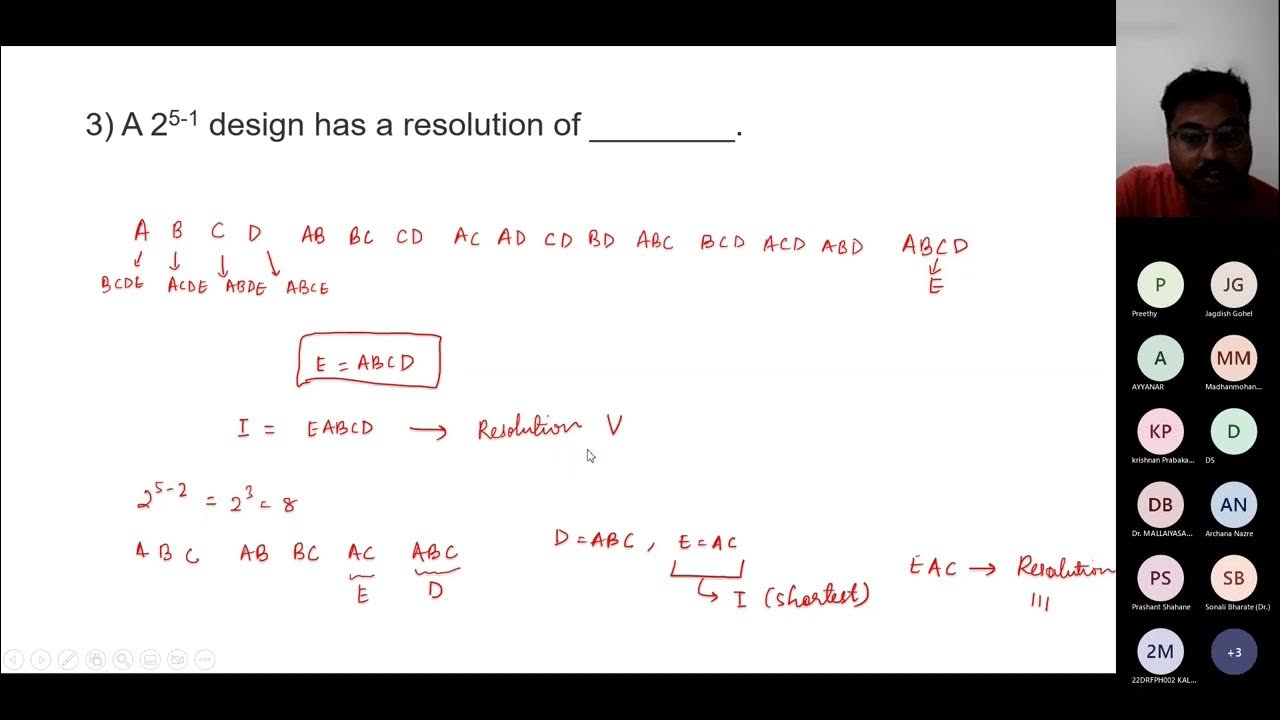 3) A 2⁵⁻¹ design has a resolution of ________.
A B C D AB BC CD AC AD CD BD ABC BCD ACD ABD ABCD
↓ ↓ ↓ ↓ ↓
BCDE ACDE ABDE ABCE E
E = ABCD
I = EABCD → Resolution V
2⁵⁻² = 2³ = 8
A B C AB BC AC ABC
E D
D = ABC , E = AC
↳ I (shortest)
EAC → Resolution
III
P JG
Preethy Jagdish Gohel
A MM
AYYANAR Madhanmohan...
KP D
krishnan Prabaka... DS
DB AN
Dr. MALLAIYASA... Archana Nazre
PS SB
Prashant Shahane Sonali Bharate (Dr.)
2M +3
22DRFPH002 KAL...